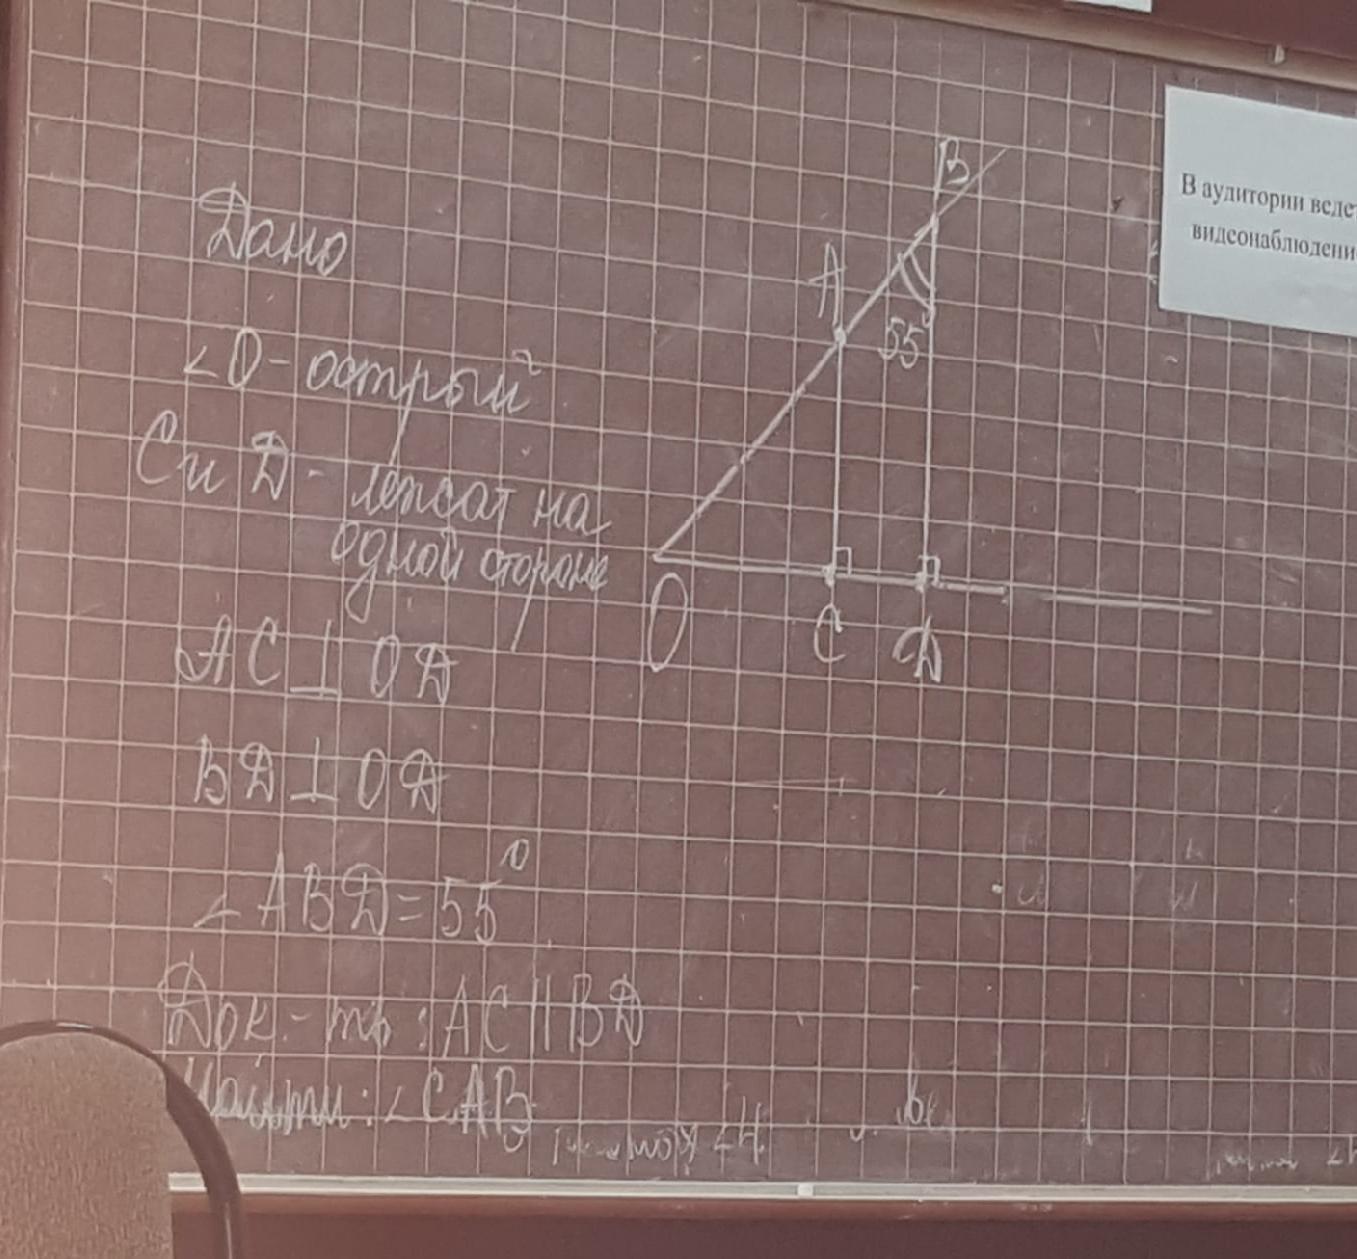 Дано
∠O - острый
С и D - лежат на
одной стороне
AC ⊥ OD
BD ⊥ OD
∠ABD = 55°
Док.-ть: AC || BD
Найти: ∠CAB
B
A
55
O
C
D
В аудитории ведет
видеонаблюдени